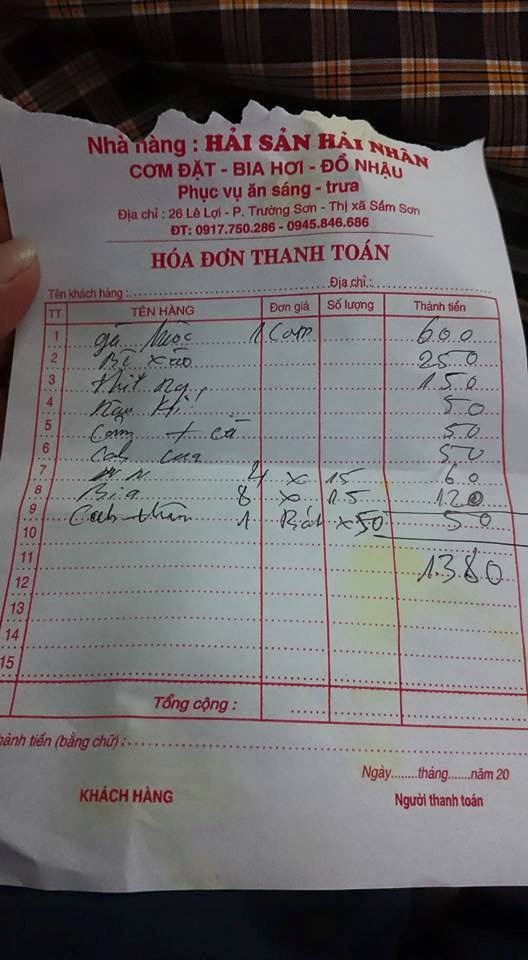 Nhà hàng : HẢI SẢN HẢI NHÂN
CƠM ĐẶT - BIA HƠI - ĐỒ NHẬU
Phục vụ ăn sáng - trưa
Địa chỉ : 26 Lê Lợi - P. Trường Sơn - Thị xã Sầm Sơn
ĐT: 0917.750.286 - 0945.846.686
HÓA ĐƠN THANH TOÁN
Tên khách hàng : Địa chỉ :
TT TÊN HÀNG Đơn giá Số lượng Thành tiền
1 gà luộc 1 con 600
2 Bò xào 250
3 thịt 150
4 50
5 Cơm + cà 50
6 Canh cua 50
7 4 x 15 60
8 Bia 8 x 15 120
9 Canh thêm 1 Bát x 50 50
10
11 1380
12
13
14
15
Tổng cộng :
hành tiền (bằng chữ) :
Ngày........tháng.......năm 20
KHÁCH HÀNG Người thanh toán